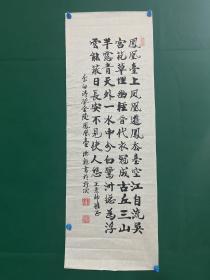 鳳凰臺上鳳凰遊鳳去臺空江自流吳
宮花草埋幽徑晉代衣冠成古丘三山
半落青天外一水中分白鷺洲總為浮
雲能蔽日長安不見使人愁
李白詩登金陵鳳凰臺